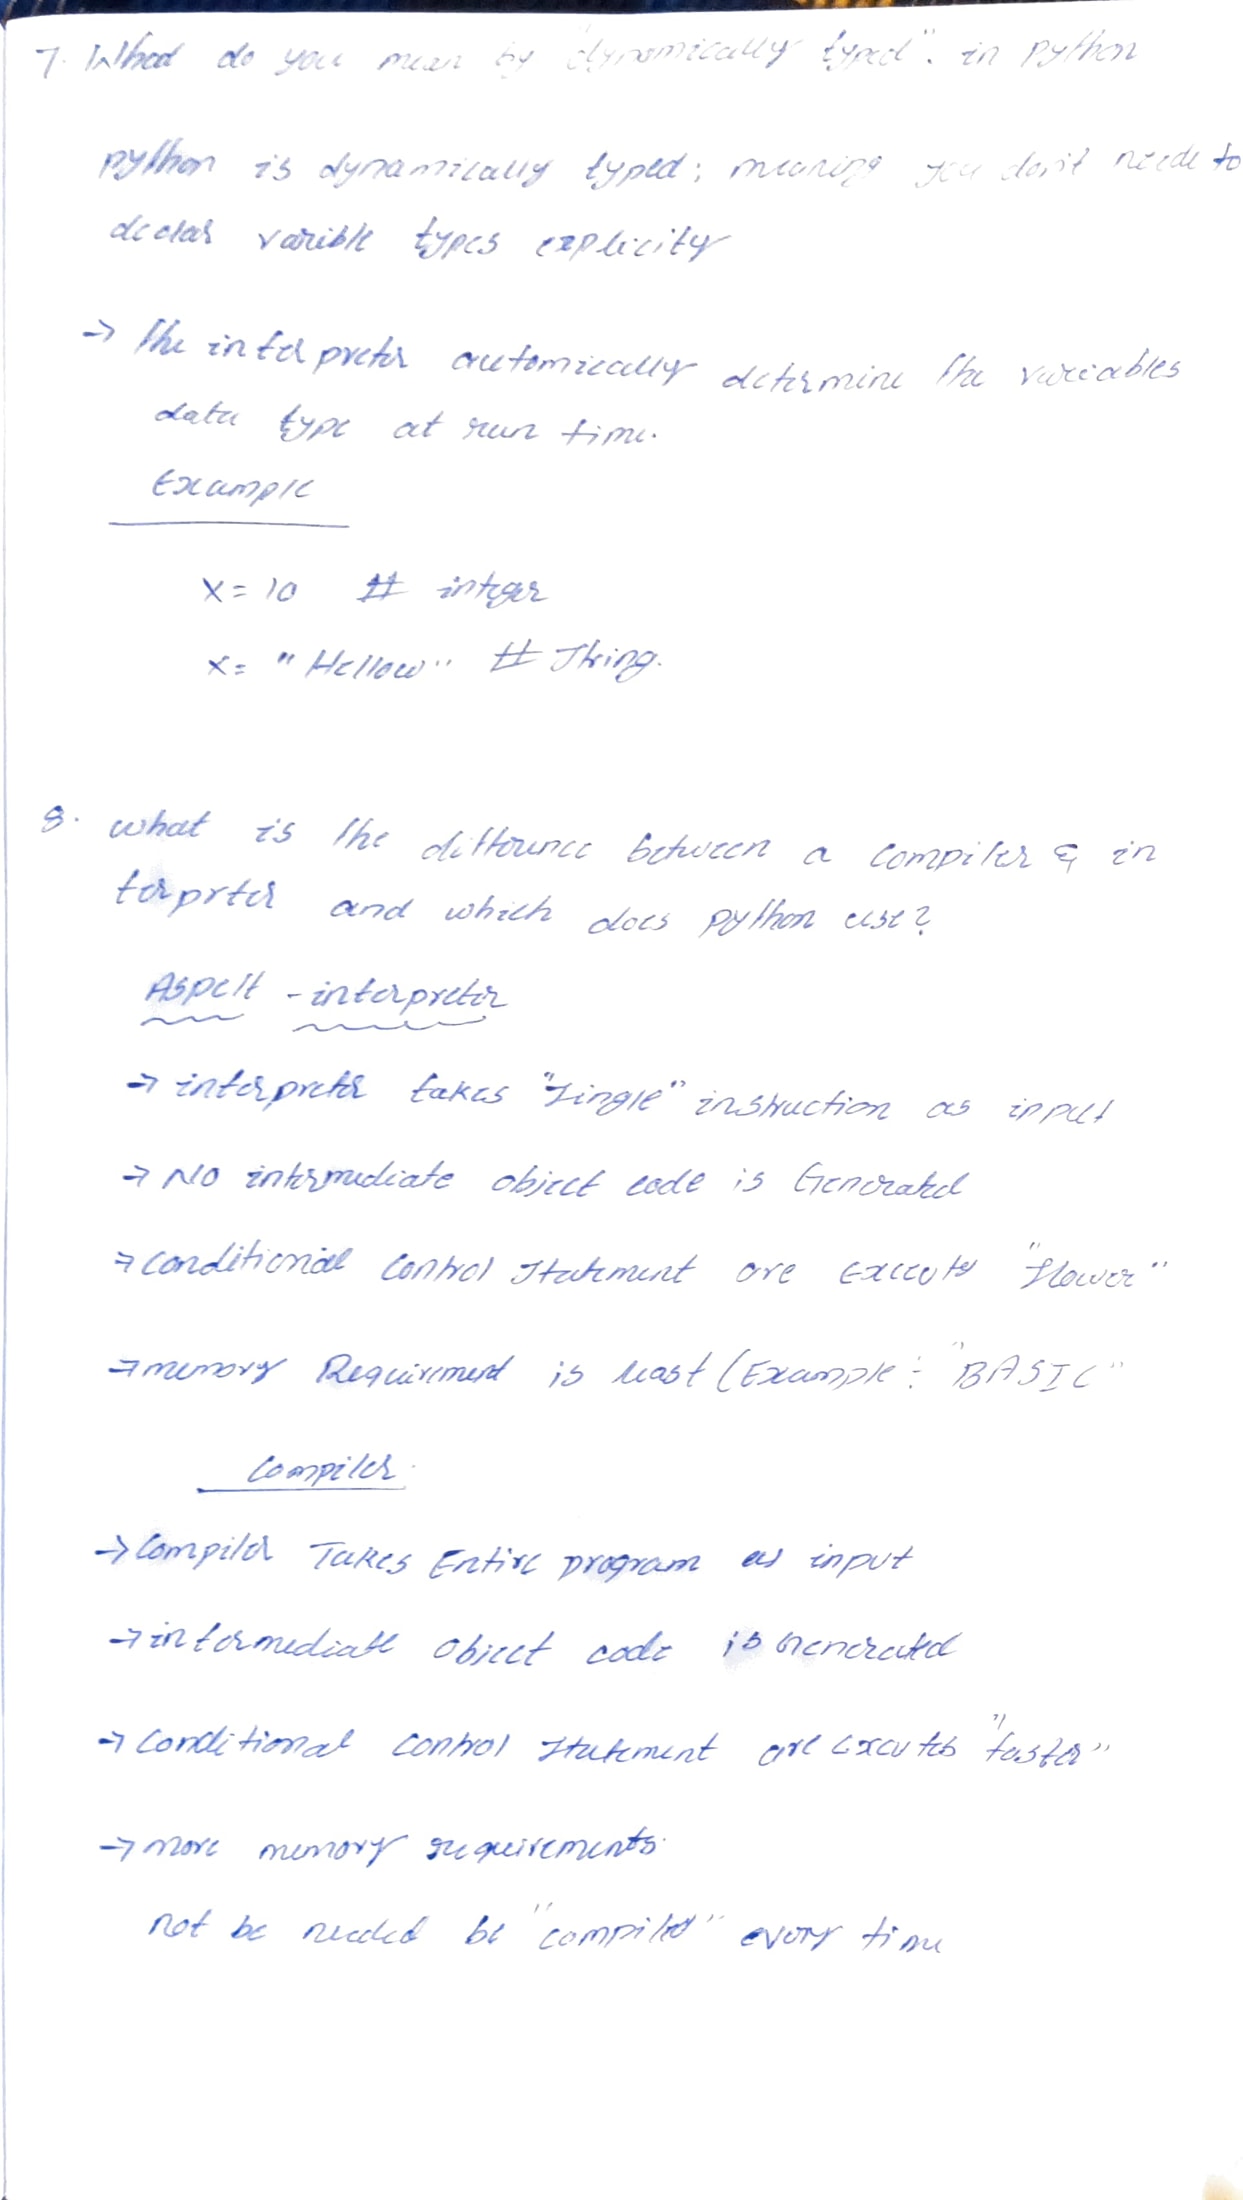 7. What do you mean by "dynamically typed". in python
python is dynamically typed; meaning you don't neede to
declar varible types explicity
→ The interpreter automically determine the variables
data type at run time.
Example
x = 10 # integer
x = "Hellow" # String.
8. what is the diffounce between a compiler & in
terprter and which does python use?
Aspelt - interpreter
→ interpreter takes "single" instruction as input
→ No intermediate object code is Generated
→ conditional control statement are executes "slower"
→ memory Requirment is least (Example : "BASIC"
Compiler.
→ Compiler Takes Entire program as input
→ intermediate object code is Generated
→ conditional control statement are excutes "faster"
→ more memory requirements.
not be needed be "compiled" every time